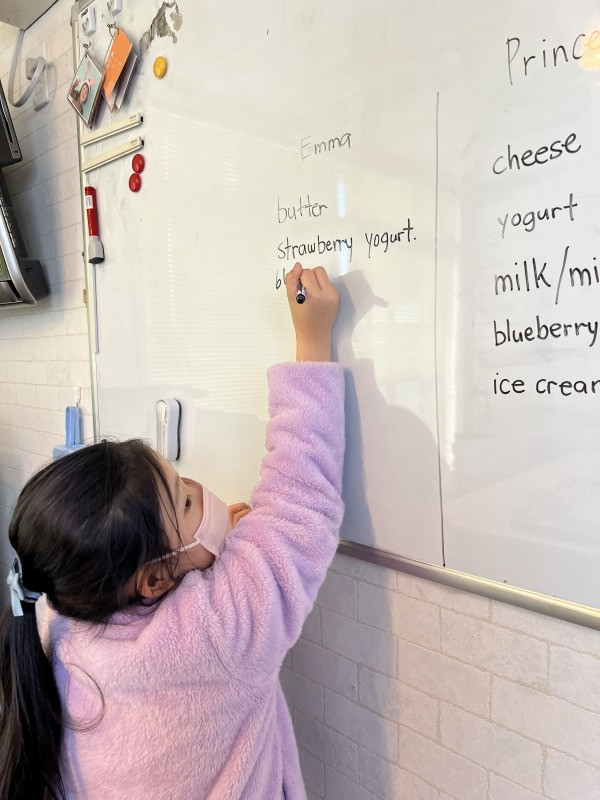 Emma
butter
strawberry yogurt.
bl
Prince
cheese
yogurt
milk/mi
blueberry
ice crear